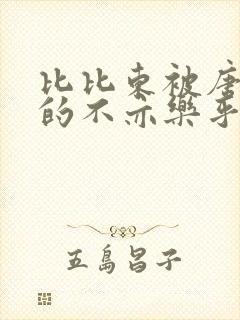 比比东被唐
的不亦乐乎
五島昌子